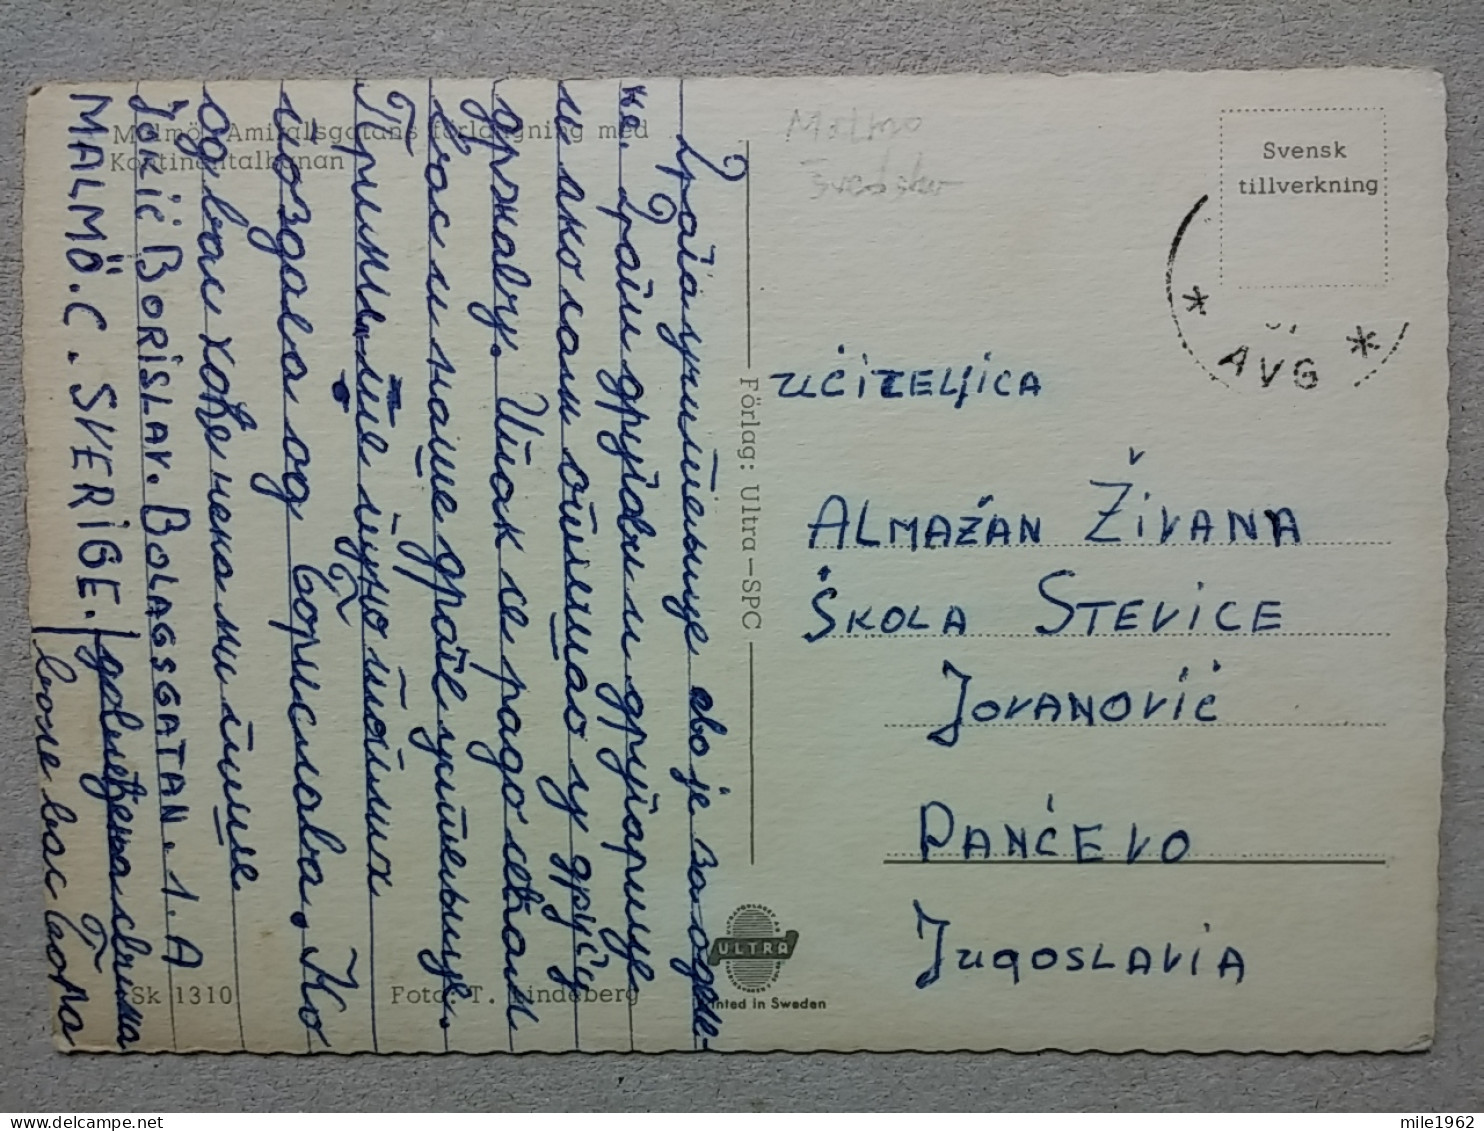 Malmö. Amiralsgatans förlängning med
Kontinentalhanan
Malmo
Svedska
Svensk
tillverkning
AVG
Förlag: Ultra-SPC
UČITELJICA
ALMAŽAN ŽIVANA
ŠKOLA STEVICE
JOVANOVIĆ
PANČEVO
JUGOSLAVIA
ULTRA
Printed in Sweden
Sk 1310
Foto: T. Lindeberg
Драга учитељице ево је за одмо-
ке. Драги другови и другарице
и ако сам отишао у другу
државу. Ипак се радо сећам
вас и наше драге учитељице.
Примите пуно пуно
поздрава од Борислава. Ко
од вас хоће нека ми пише
JOKIĆ BORISLAV. BOLAGSGATAN. 1. A
MALMÖ. C. SVERIGE.
довиђења свима
воле вас Бора
mile1962